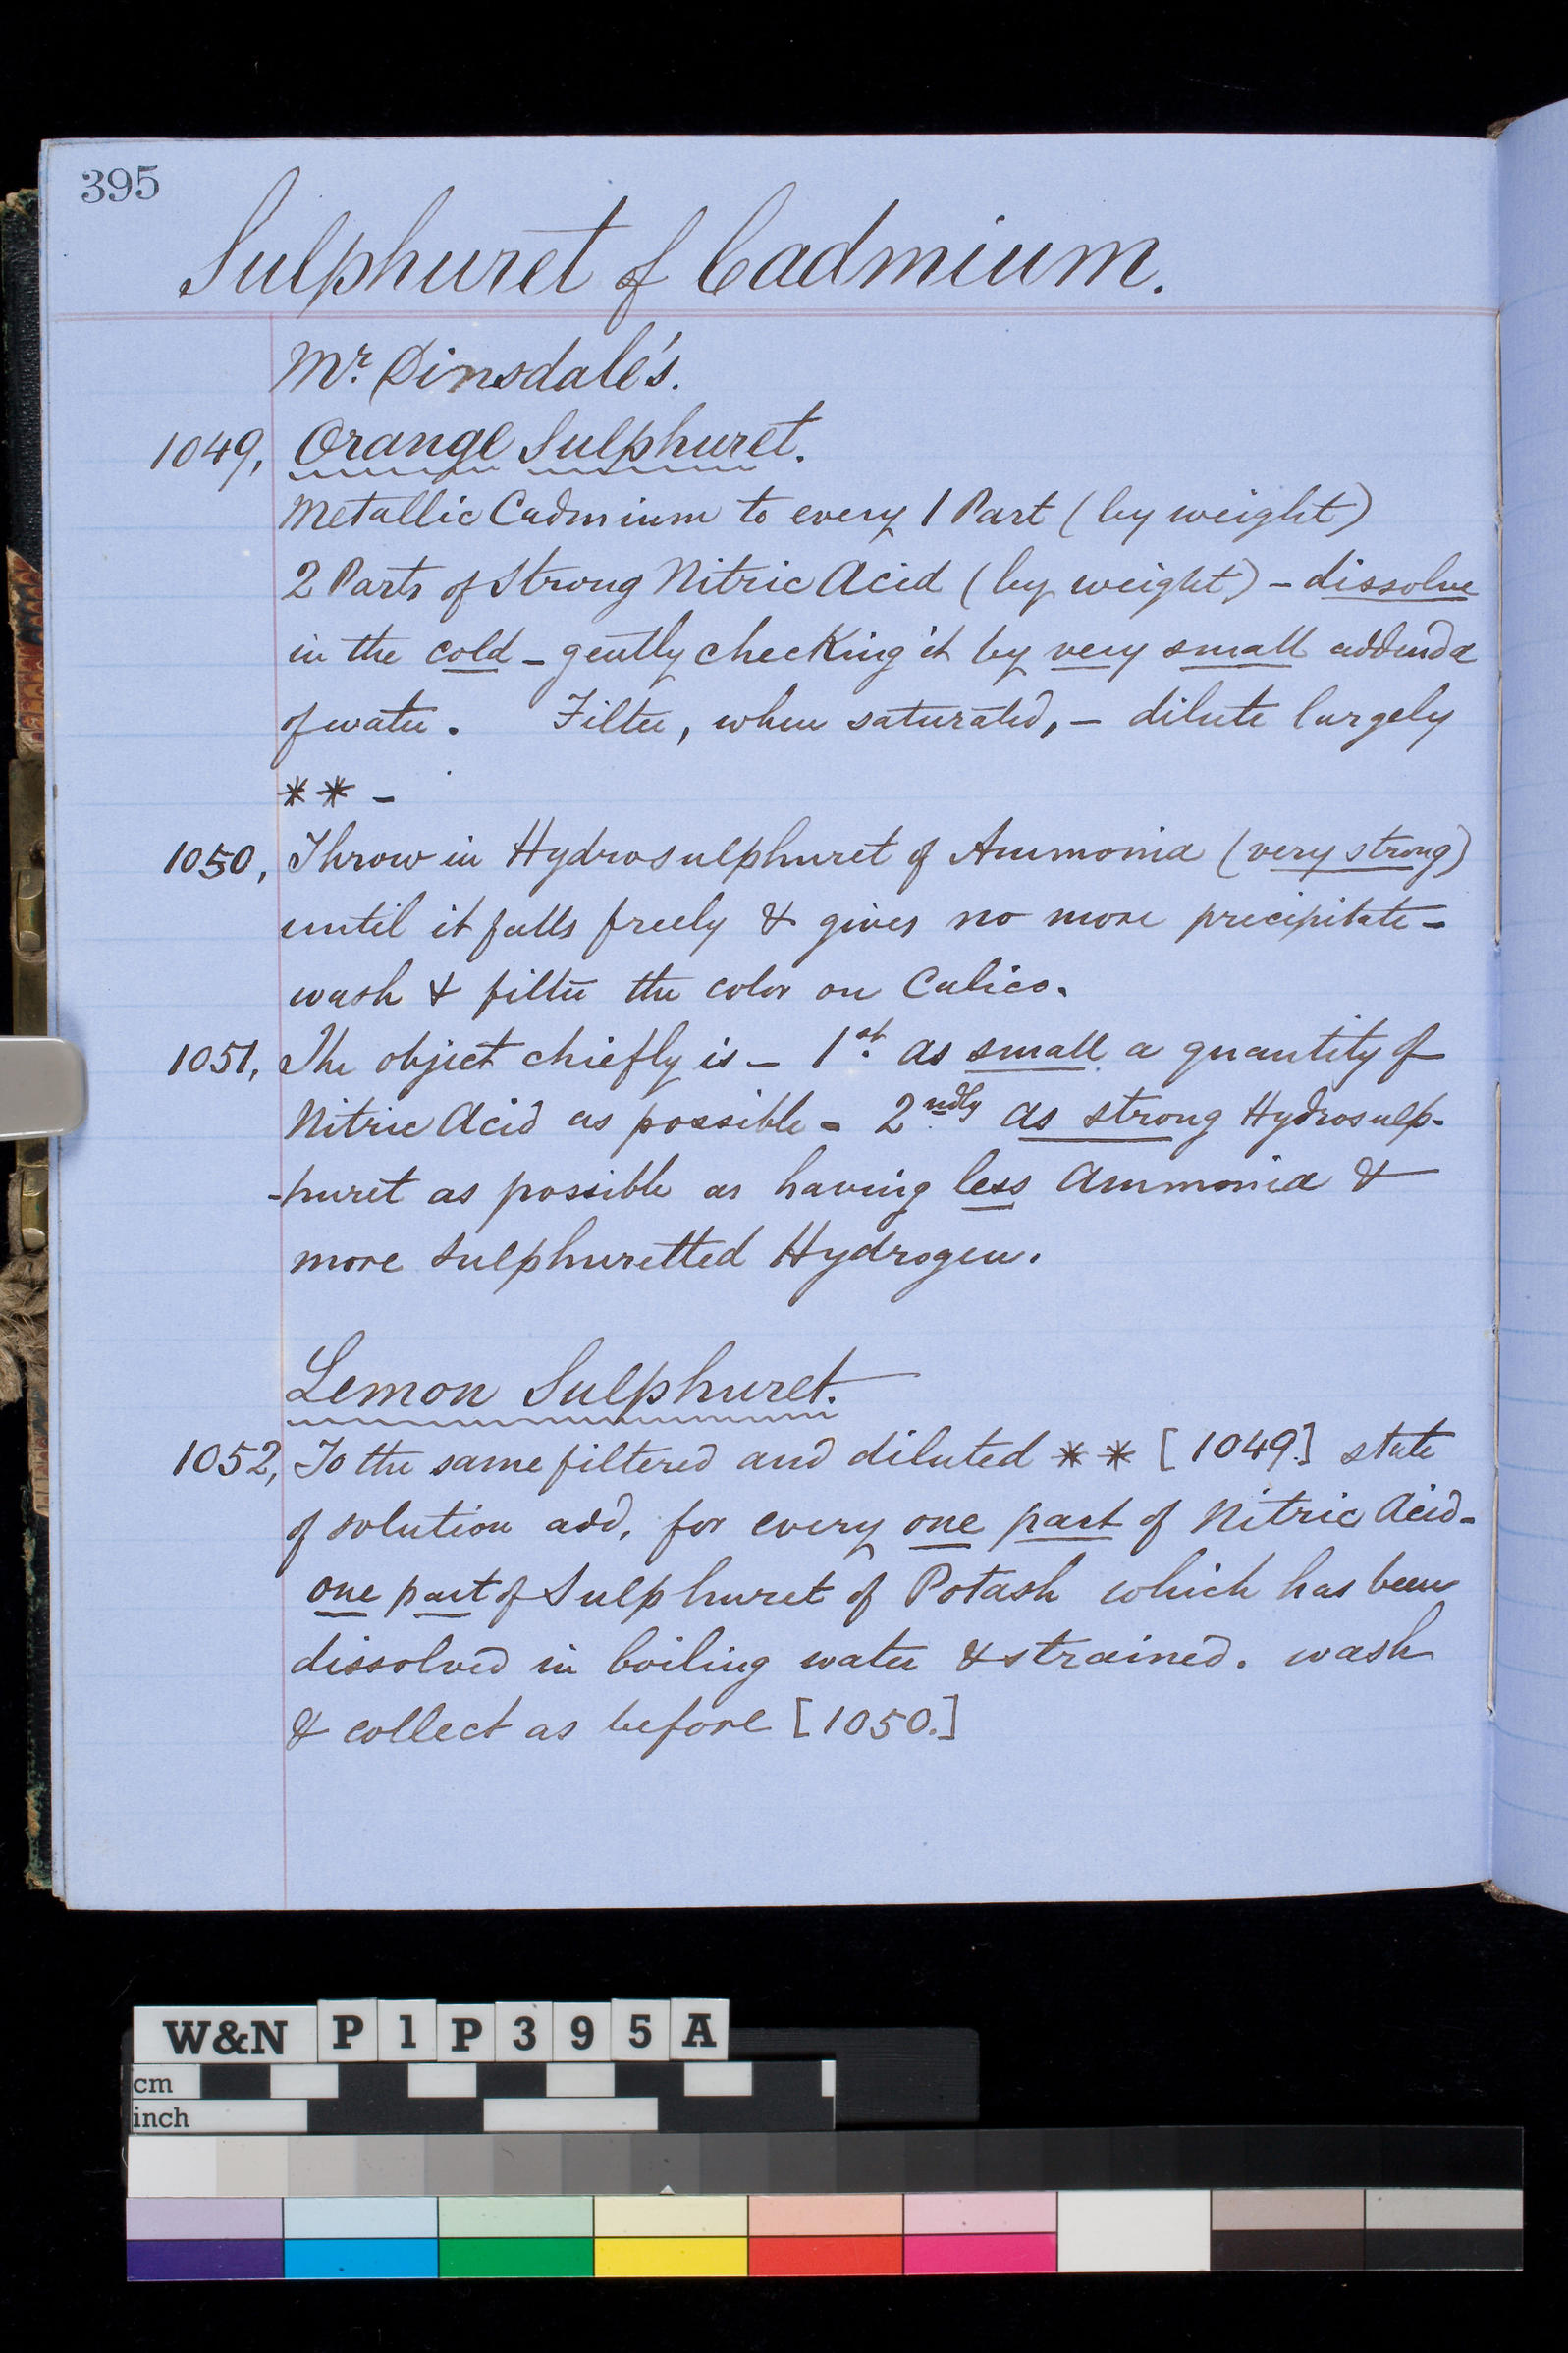 395
Sulphuret of Cadmium.
Mr. Dinsdale's.
1049, Orange Sulphuret.
Metallic Cadmium to every 1 Part (by weight)
2 Parts of Strong Nitric Acid (by weight) – dissolve
in the cold – gently checking it by very small addenda
of water. Filter, when saturated, – dilute largely
** –
1050, Throw in Hydrosulphuret of Ammonia (very strong)
until it falls freely & gives no more precipitate –
wash & filter the color on Calico.
1051, The object chiefly is – 1st. as small a quantity of
Nitric Acid as possible – 2ndly as strong Hydrosulp-
-huret as possible as having less Ammonia &
more Sulphuretted Hydrogen.
Lemon Sulphuret.
1052, To the same filtered and diluted ** [1049.] state
of solution add, for every one part of Nitric Acid –
one part of Sulphuret of Potash which has been
dissolved in boiling water & strained. wash
& collect as before [1050.]
W&N P1P395A
cm
inch